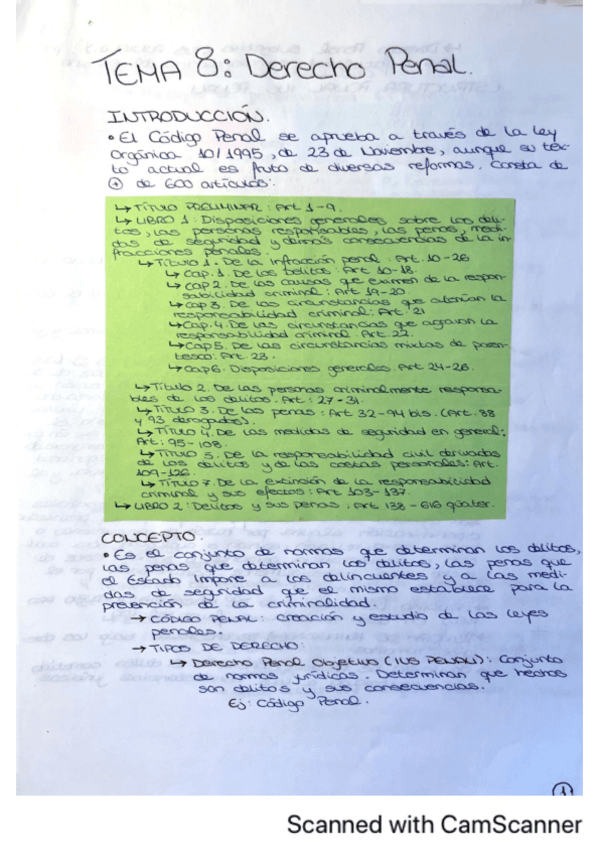 TEMA 8: Derecho Penal.
INTRODUCCIÓN.
• El Código Penal se aprueba a través de la Ley
Orgánica 10/1995, de 23 de Noviembre, aunque su tex-
to actual es fruto de diversas reformas. Consta de
⊕ de 600 artículos:
↳ TÍTULO PRELIMINAR: Art 1-9.
↳ LIBRO 1: Disposiciones generales sobre los deli-
tos, las personas responsables, las penas, medi-
das de seguridad y demás consecuencias de la in-
fracciones penales.
↳ Título 1. De la infracción penal. Art. 10-26
↳ Cap. 1. De los Delitos: Art 10-18.
↳ Cap 2. De las causas que eximen de la respon-
sabilidad criminal: Art 19-20
↳ Cap 3. De las circunstancias que atenúan la
responsabilidad criminal: Art. 21
↳ Cap. 4. De las circunstancias que agravan la
responsabilidad criminal: Art. 22.
↳ Cap 5. De las circunstancias mixtas de paren-
tesco: Art. 23.
↳ Cap 6. Disposiciones generales. Art 24-26.
↳ Título 2. De las personas criminalmente responsa-
bles de los delitos. Art: 27-31.
↳ TÍTULO 3. De las penas: Art 32-94 bis. (Art. 88
y 93 derogados).
↳ TÍTULO 4. De las medidas de seguridad en general:
Art: 95-108.
↳ TÍTULO 5. De la responsabilidad civil derivados
de los delitos y de las costas personales: Art.
109-126.
↳ TÍTULO 7. De la extinción de la responsabilidad
criminal y sus efectos: Art 103-137.
↳ LIBRO 2: Delitos y sus penas. Art 138-616 quáter.
CONCEPTO.
• Es el conjunto de normas que determinan los delitos,
las penas que determinan los delitos, las penas que
el Estado impone a los delincuentes y a las medi-
das de seguridad que el mismo establece para la
prevención de la criminalidad.
→ CÓDIGO PENAL: creación y estudio de las leyes
penales.
→ TIPOS DE DERECHO:
↳ Derecho Penal Objetivo (IUS PENALI): Conjunto
de normas jurídicas. Determinan que hechos
son delitos y sus consecuencias.
Ej: Código Penal.
1
Scanned with CamScanner